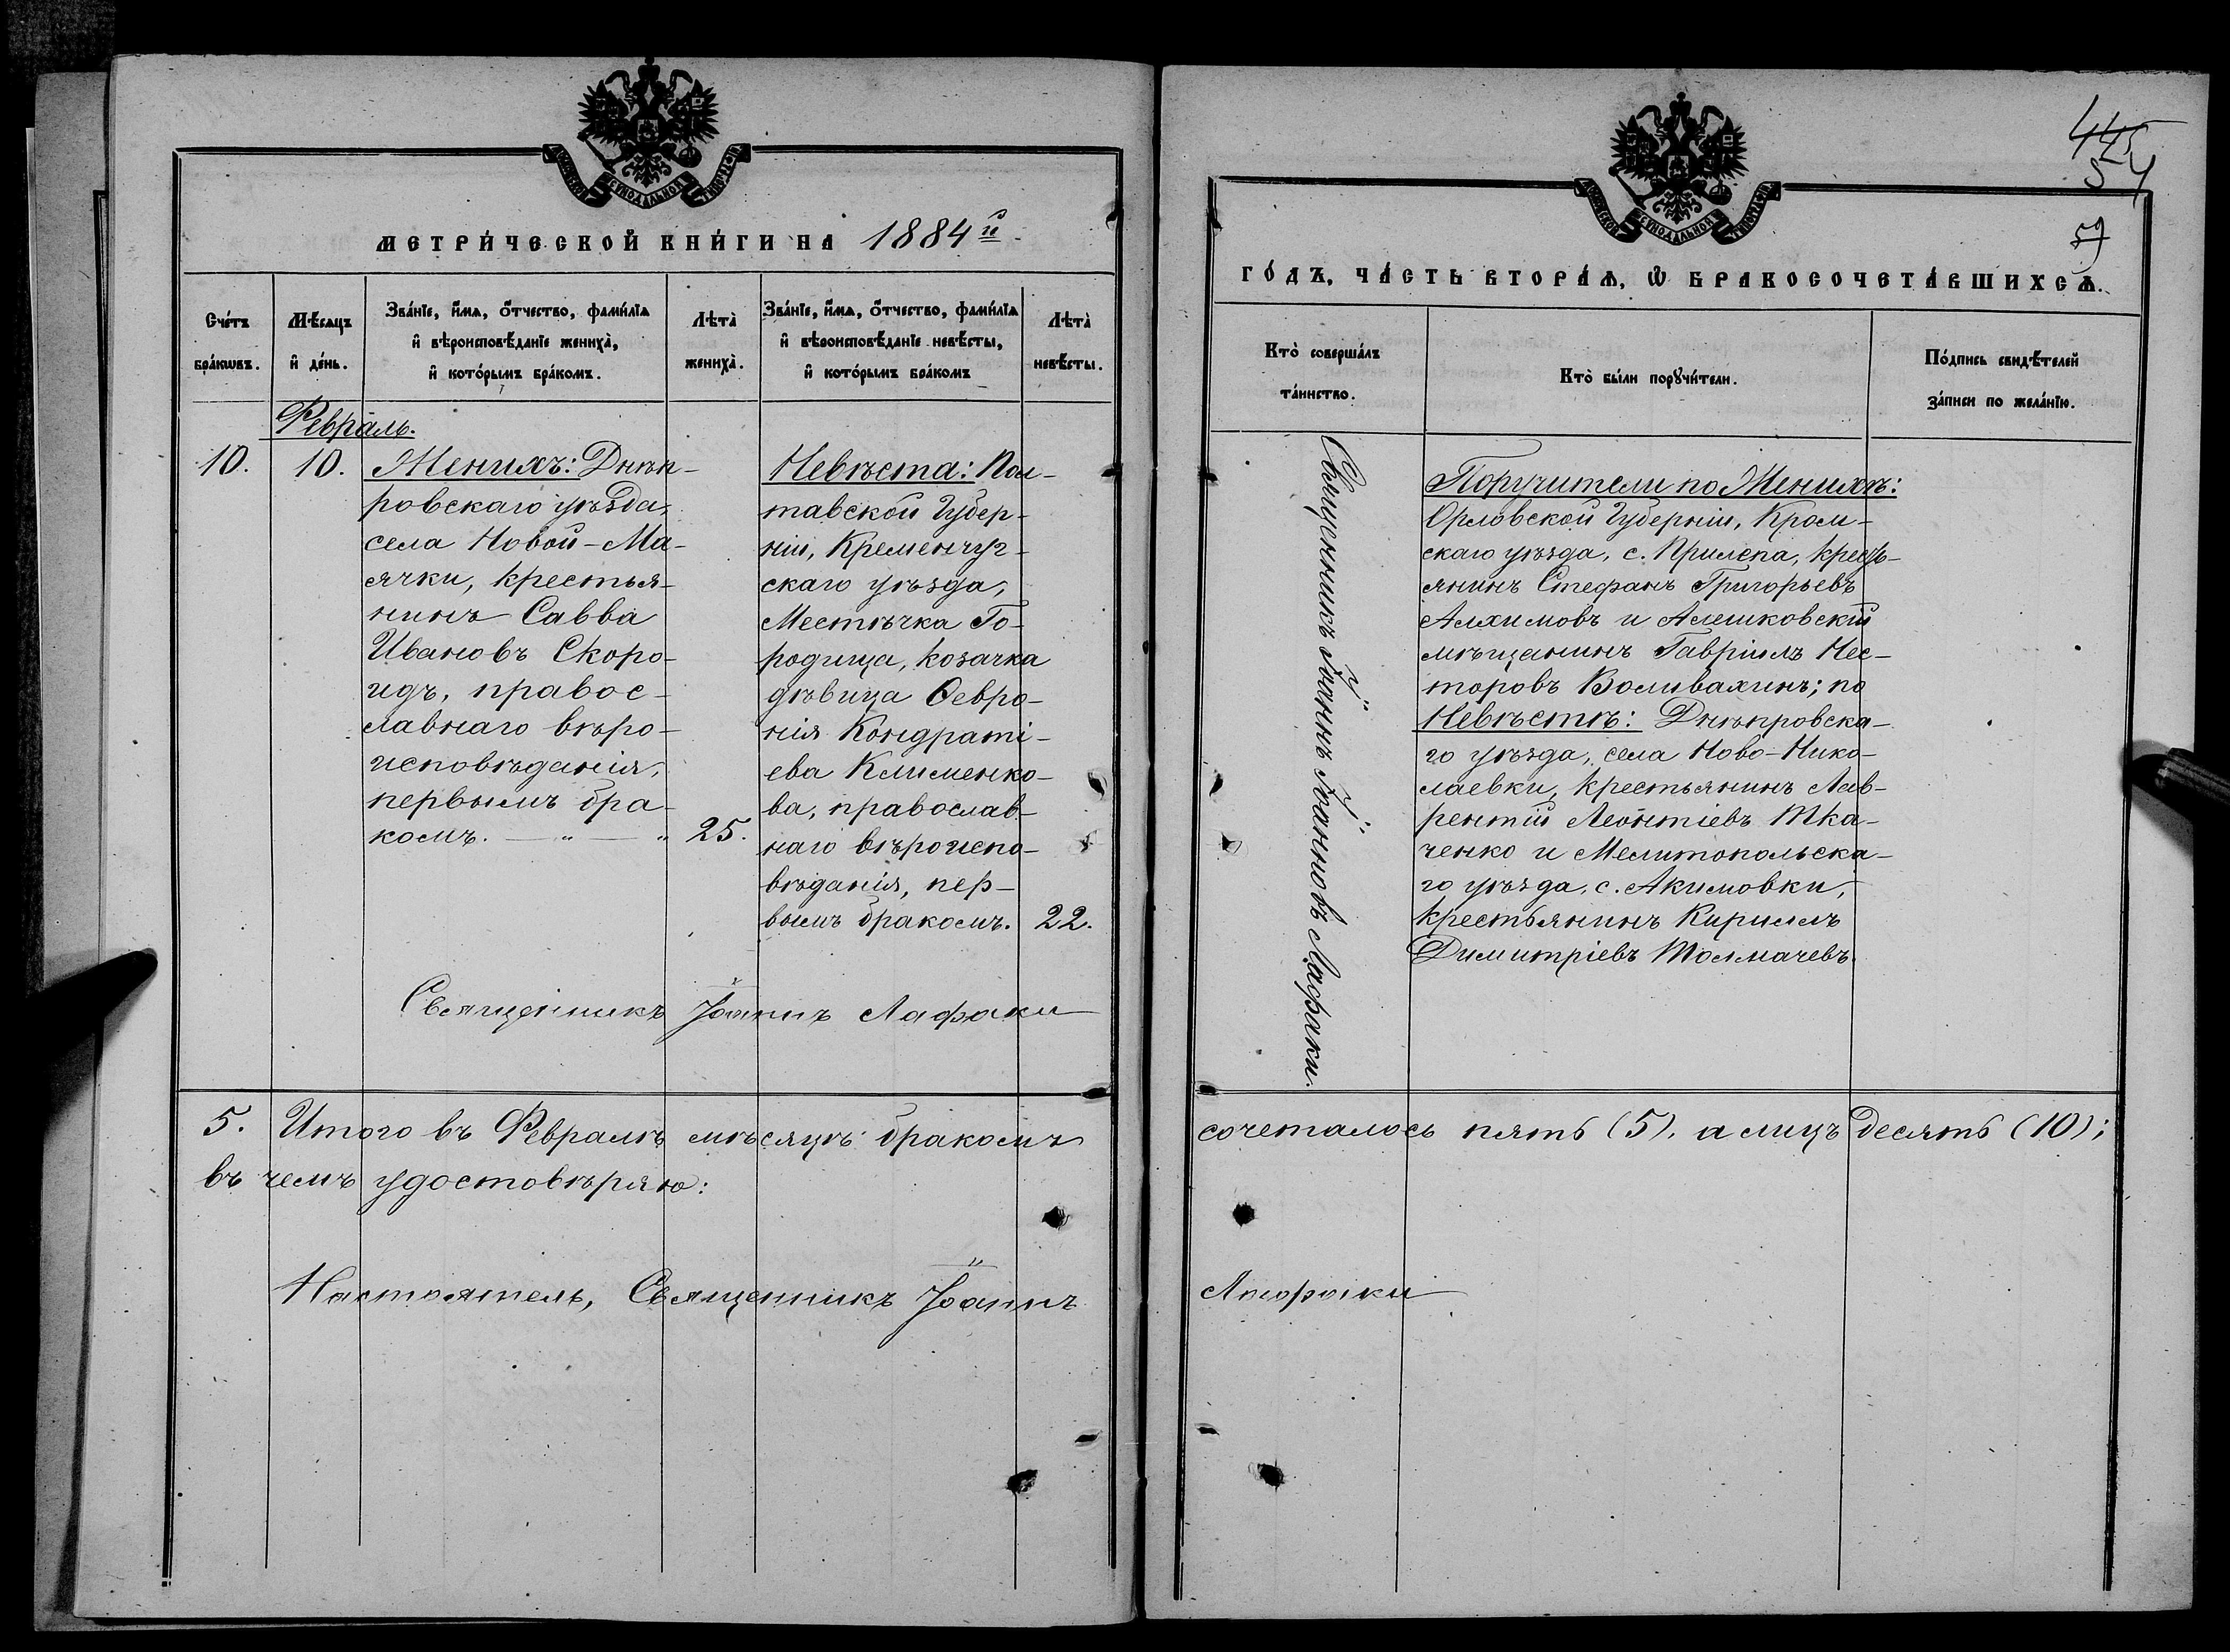 МОСКОВСКОЙ СѴНОДАЛЬНОЙ ТИПОГРАФІИ
МЕТРИ́ЧЕСКОЙ КНИ́ГИ НА 1884й
Сче́тъ бра́кѡвъ.
Мѣ́сяцъ и҆ де́нь.
Зва́нїе, и҆́мѧ, ѻ҆́тчество, фами́лїѧ
и҆ вѣроисповѣ́данїе жениха̀,
и҆ кото́рымъ бра́комъ.
Лѣта̀ жениха̀.
Зва́нїе, и҆́мѧ, ѻ҆́тчество, фами́лїѧ
и҆ вѣроисповѣ́данїе невѣ́сты,
и҆ кото́рымъ бра́комъ
Лѣта̀ невѣ́сты.
Февраль.
10.
10.
Женихъ: Днѣп-
ровскаго уѣзда,
села Новой-Ма-
ячки, крестья-
нинъ Савва
Ивановъ Скоро-
идъ, правос-
лавнаго вѣро-
исповѣданія,
первымъ бра-
комъ. — „ — „ 25.
Невѣста: Пол-
тавской Губер-
ніи, Кременчуг-
скаго уѣзда,
Местѣчка Го-
родища, козачка
дѣвица Ѳевро-
нія Кондраті-
ева Клименко-
ва, православ-
наго вѣроиспо-
вѣданія, пер-
вымъ бракомъ. 22.
Священникъ Іоаннъ Лафаки
5. Итого въ Февралѣ мѣсяцѣ бракомъ
въ чемъ удостовѣряю:
Настоятель, Священникъ Іоаннъ
445
54
59
МОСКОВСКОЙ СѴНОДАЛЬНОЙ ТИПОГРАФІИ
ГО́ДЪ, ЧА́СТЬ ВТОРА́Ѧ, Ѽ БРАКОСОЧЕТА́ВШИХСѦ.
Кто̀ соверша́лъ
та́инство.
Кто̀ бы́ли порꙋчи́тели.
По́дпись свидѣ́телей
за́писи по жела́нїю.
Священникъ Іоаннъ Іоанновъ Лафаки.
Поручители по Женихѣ:
Орловской Губерніи, Кром-
скаго уѣзда, с. Прилепа, кресть-
янинъ Стефанъ Григорьевъ
Алхимовъ и Алешковскій
мѣщанинъ Гавріилъ Нес-
торовъ Воливахинъ; по
Невѣстѣ: Днѣпровска-
го уѣзда, села Ново-Нико-
лаевки, крестьянинъ Лав-
рентій Леонтіевъ Тка-
ченко и Мелитопольска-
го уѣзда, с. Акимовки,
крестьянинъ Кириллъ
Димитріевъ Толмачевъ.
сочеталось пять (5), а лицъ десять (10);
Лафаки